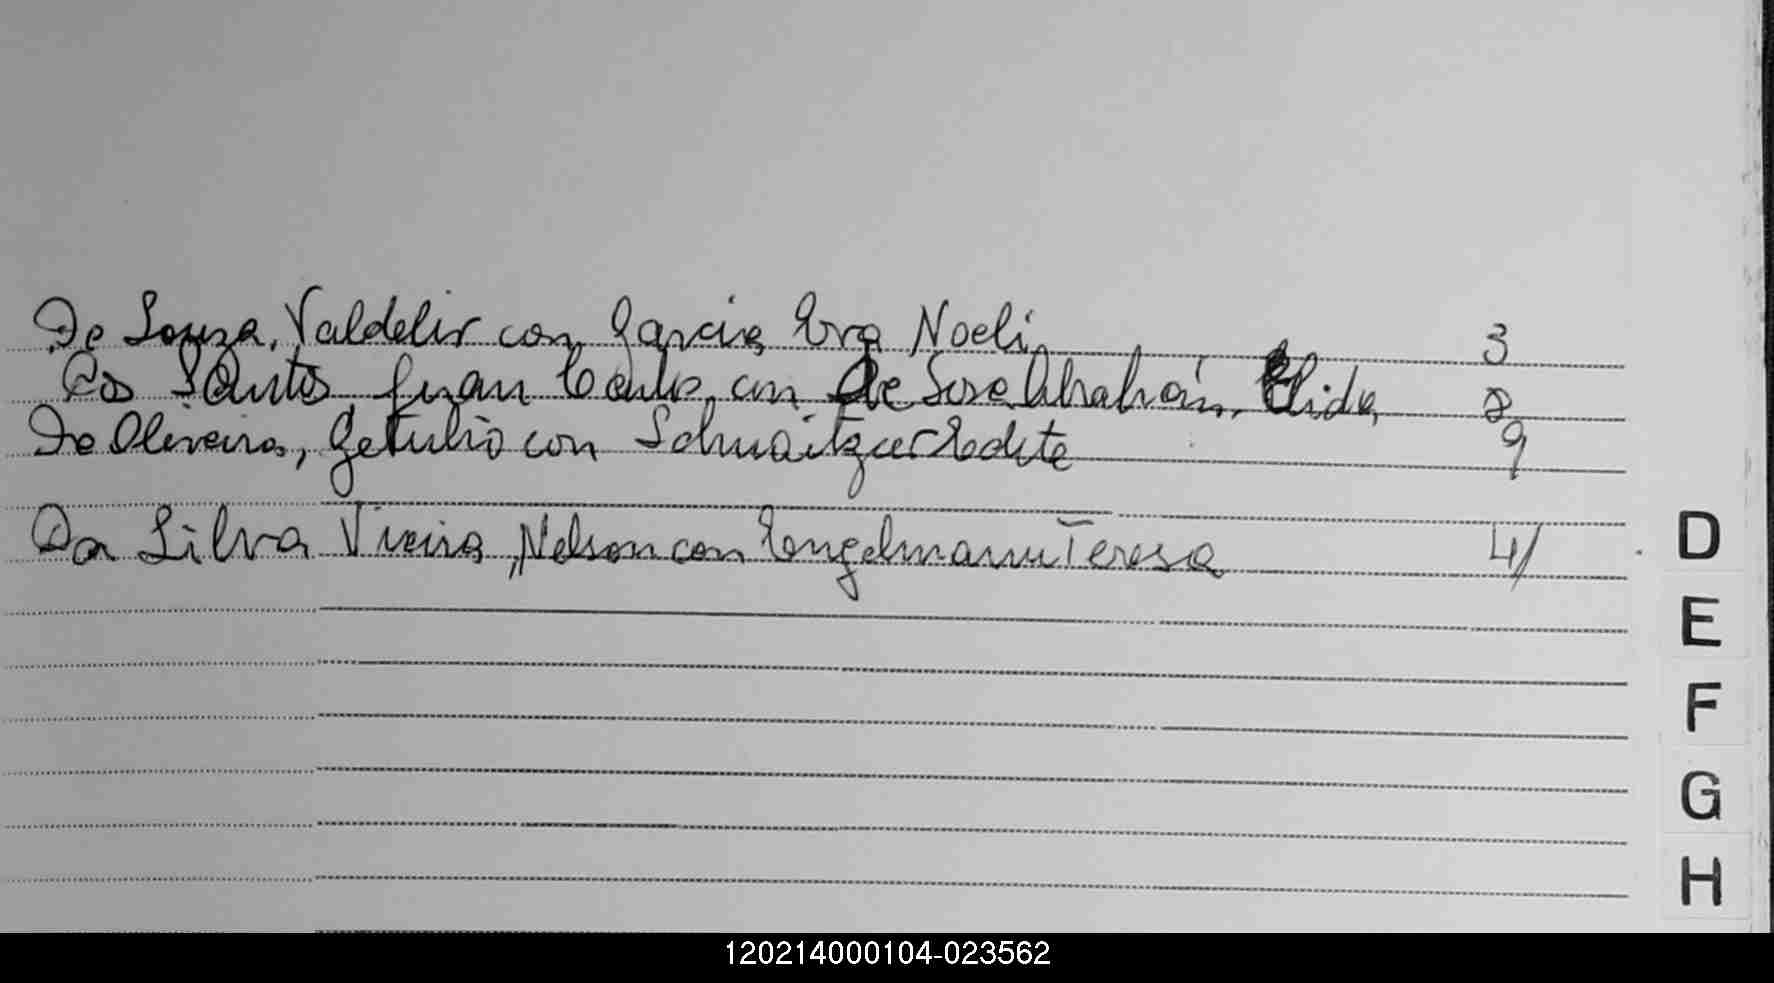 De Souza, Valdelir con Garcia Eva Noeli 3
Dos Santos Juan Carlos, con De Elida 8
De Oliveira, Getulio con Edite 9
Da Silva Vieira, Nelson con Engelmann Teresa 4/
D
E
F
G
H
120214000104-023562